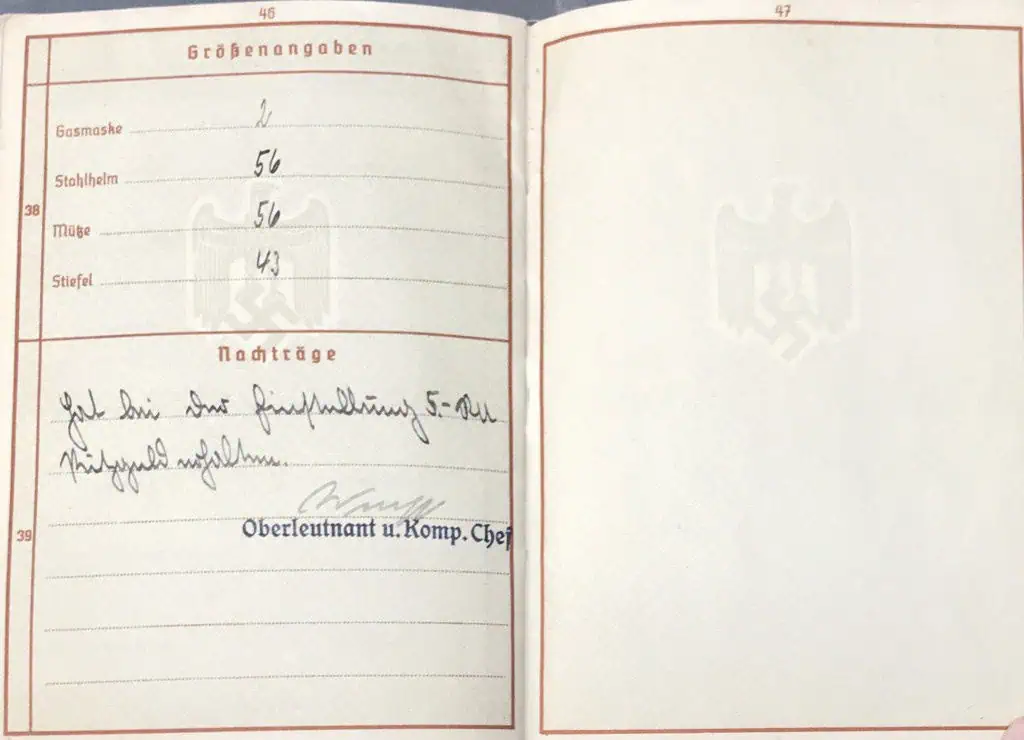 46
Größenangaben
Gasmaske 2
Stahlhelm 56
38
Mütze 56
Stiefel 43
Nachträge
Hat bei der Einstellung 5.- RM
Putzgeld erhalten.
Oberleutnant u. Komp. Chef
39
47